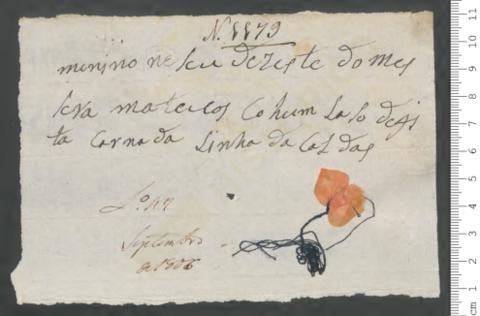 N. 1179
menino nesceu dezeste do mes
leva mateicos Cohum Laso defis
ta Carnada Linha da Cal das
L.o 47
Septembro
a 1806
cm 1 2 3 4 5 6 7 8 9 10 11